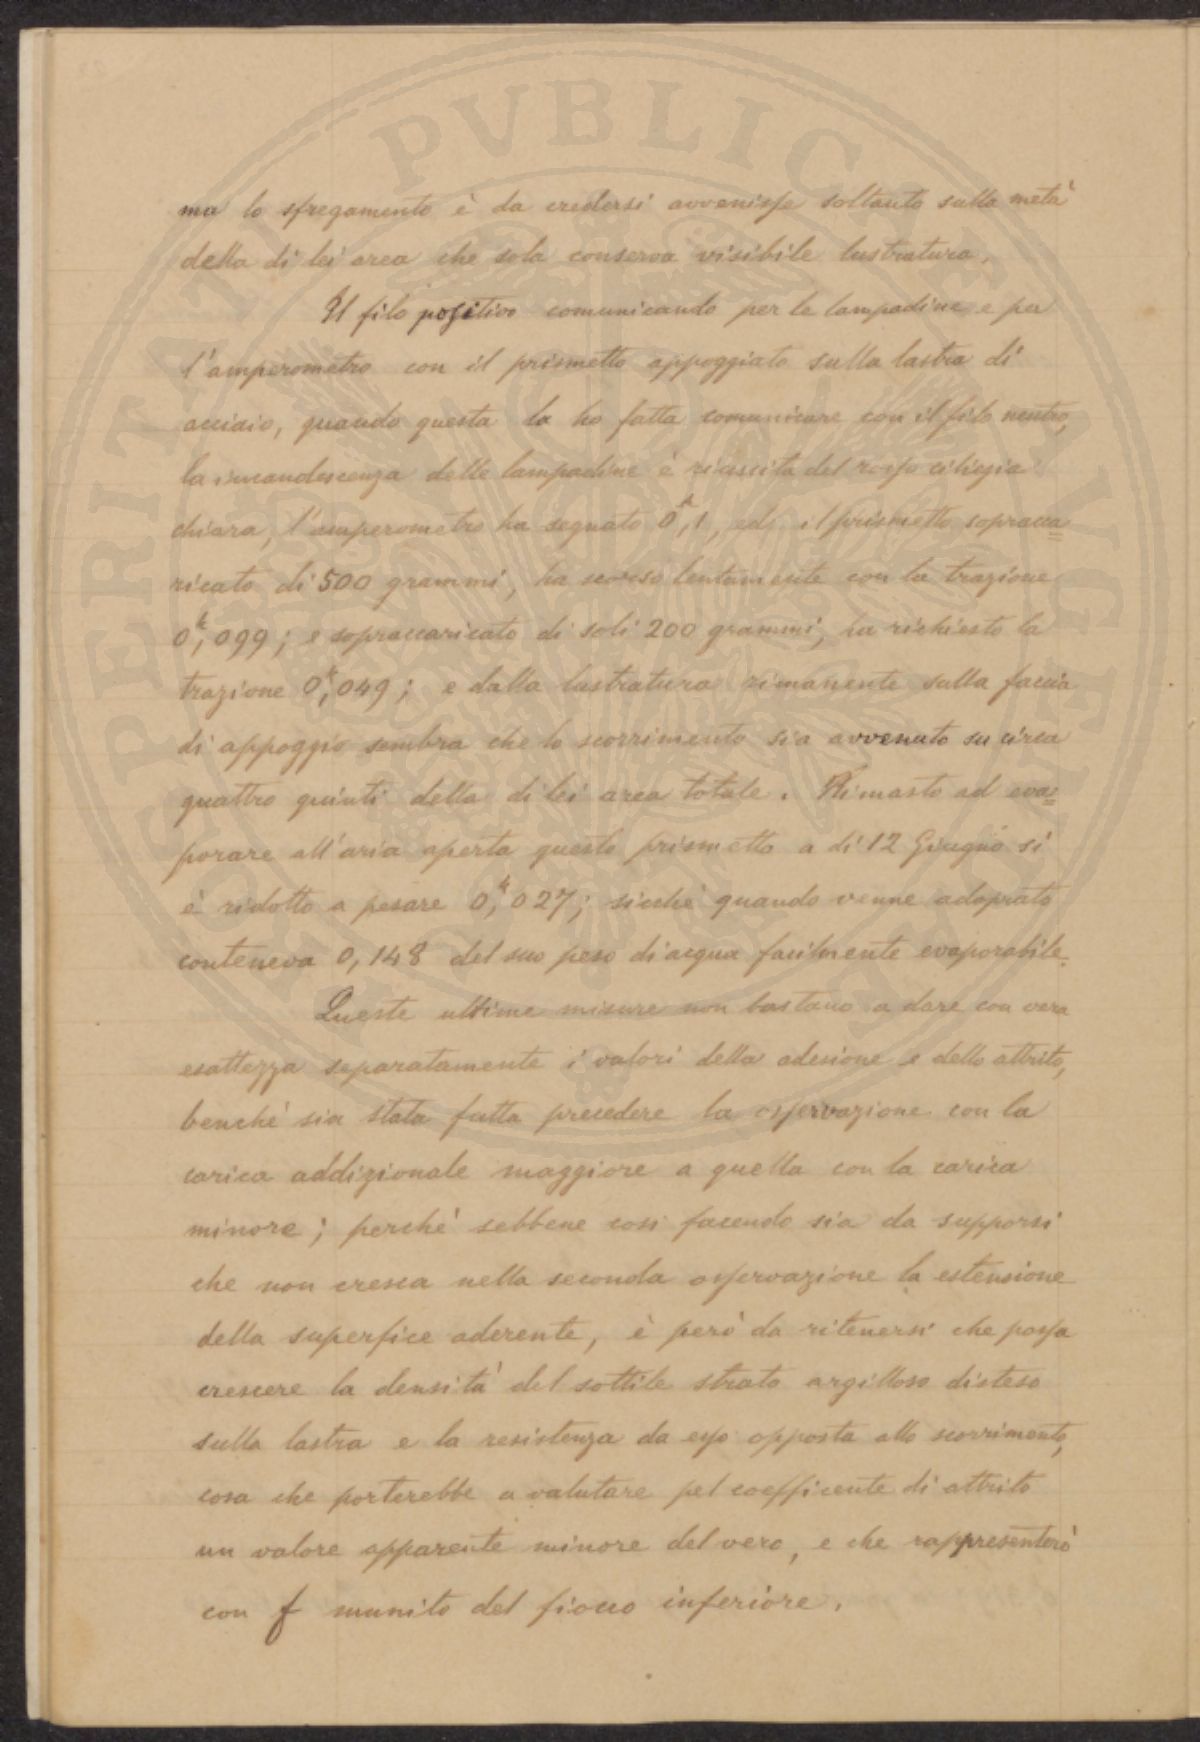 ma lo sfregamento è da credersi avvenisse soltanto sulla metà
della di lei area che sola conserva visibile lustratura.
Il filo positivo comunicando per le lampadine e per
l'amperometro con il prismetto appoggiato sulla lastra di
acciaio, quando questa la ho fatta comunicare con il filo neutro,
la incandescenza delle lampadine è riuscita del rosso ciliegia
chiara, l'amperometro ha segnato 0,1, ed il prismetto sopracca=
ricato di 500 grammi, ha scorso lentamente con la trazione
0k,099; e sopraccaricato di soli 200 grammi, ha richiesto la
trazione 0k,049; e dalla lustratura rimanente sulla faccia
di appoggio sembra che lo scorrimento sia avvenuto su circa
quattro quinti della di lei area totale. Rimasto ad eva=
porare all'aria aperta questo prismetto a di 12 Giugno si
è ridotto a pesare 0k,027; sicchè quando venne adoprato
conteneva 0,148 del suo peso di acqua facilmente evaporabile.
Queste ultime misure non bastano a dare con vera
esattezza separatamente i valori della adesione e dello attrito,
benchè sia stata fatta precedere la osservazione con la
carica addizionale maggiore a quella con la carica
minore; perchè sebbene così facendo sia da supporsi
che non cresca nella seconda osservazione la estensione
della superfice aderente, è però da ritenersi che possa
crescere la densità del sottile strato argilloso disteso
sulla lastra e la resistenza da esso opposta allo scorrimento,
cosa che porterebbe a valutare pel coefficente di attrito
un valore apparente minore del vero, e che rappresenterò
con f munito del fiocco inferiore.
PROSPERITATI PVBLICAE AVGENDAE